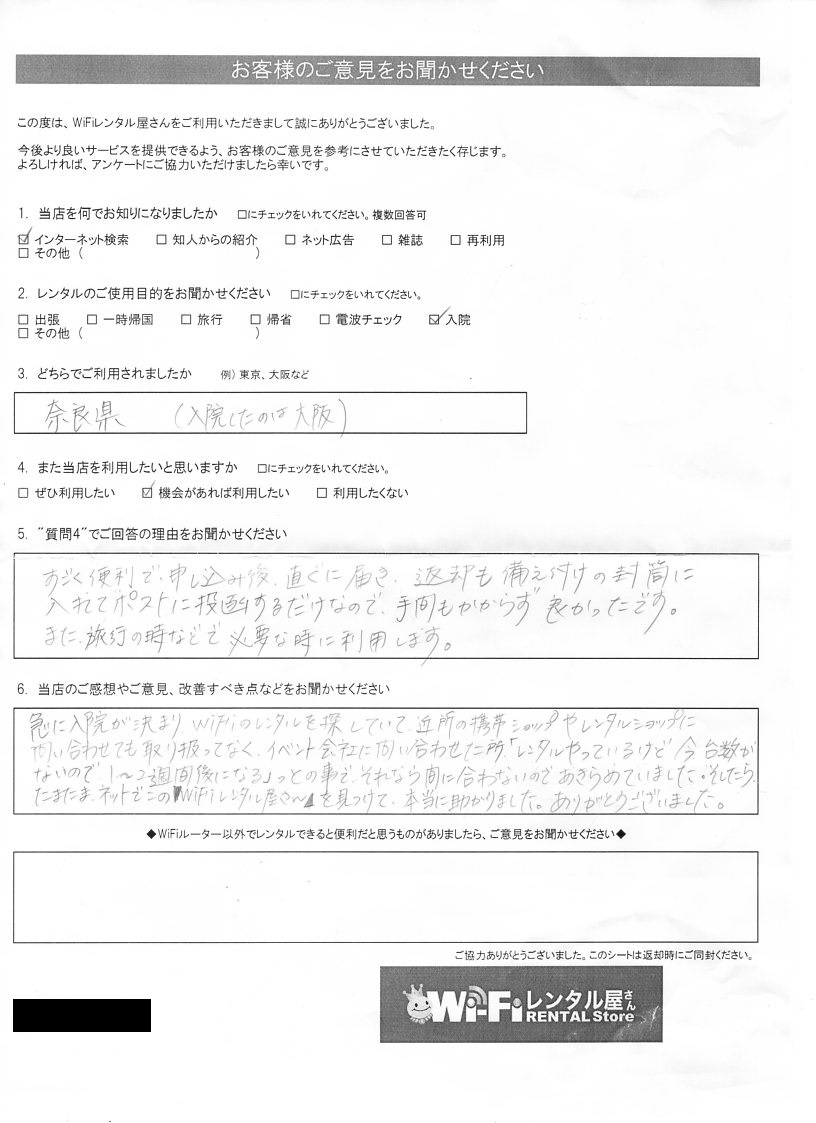 お客様のご意見をお聞かせください
この度は、WiFiレンタル屋さんをご利用いただきまして誠にありがとうございました。
今後より良いサービスを提供できるよう、お客様のご意見を参考にさせていただきたく存じます。
よろしければ、アンケートにご協力いただけましたら幸いです。
1. 当店を何でお知りになりましたか □にチェックをいれてください。複数回答可
☑ インターネット検索 □ 知人からの紹介 □ ネット広告 □ 雑誌 □ 再利用
□ その他 ( )
2. レンタルのご使用目的をお聞かせください □にチェックをいれてください。
□ 出張 □ 一時帰国 □ 旅行 □ 帰省 □ 電波チェック ☑ 入院
□ その他 ( )
3. どちらでご利用されましたか 例) 東京、大阪など
奈良県 (入院したのは大阪)
4. また当店を利用したいと思いますか □にチェックをいれてください。
□ ぜひ利用したい ☑ 機会があれば利用したい □ 利用したくない
5. “質問4”でご回答の理由をお聞かせください
すごく便利で、申し込み後、直ぐに届き、返却も備え付けの封筒に
入れてポストに投函するだけなので、手間もかからず良かったです。
また、旅行の時などで必要な時に利用します。
6. 当店のご感想やご意見、改善すべき点などをお聞かせください
急に入院が決まり WiFiのレンタルを探していて、近所の携帯ショップやレンタルショップに
問い合わせても取り扱ってなく、イベント会社に問い合わせた所「レンタルやっているけど今台数が
ないので 1〜2週間後になる」っとの事で、それなら間に合わないのであきらめていました。そしたら、
たまたま、ネットでこの『WiFiレンタル屋さん』を見つけて、本当に助かりました。ありがとうございました。
◆WiFiルーター以外でレンタルできると便利だと思うものがありましたら、ご意見をお聞かせください◆
ご協力ありがとうございました。このシートは返却時にご同封ください。
Wi-Fi レンタル屋さん
RENTAL Store